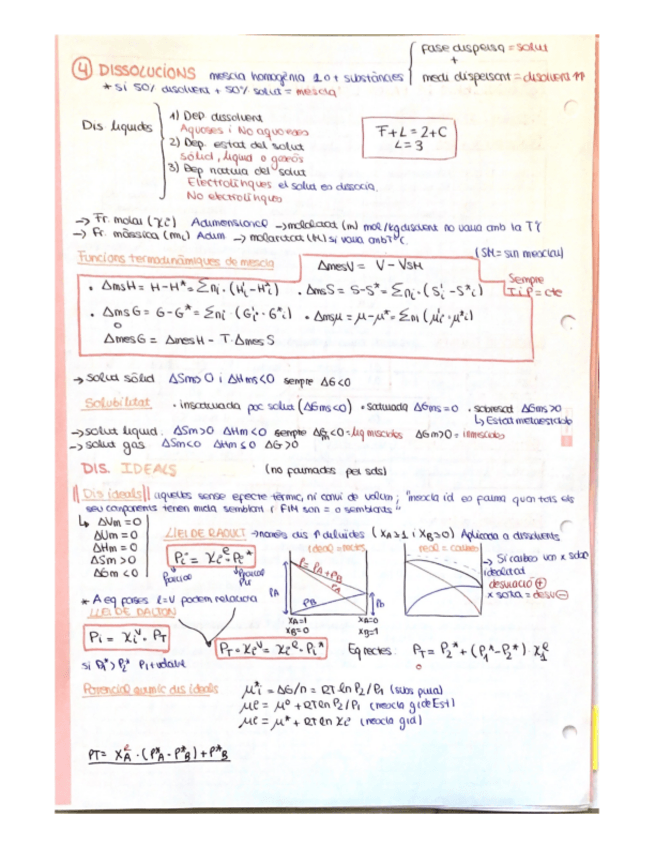 fase dispersa = solut
+
④ DISSOLUCIONS mescla homogènia 2 o + substàncies medi dispersant = disolvent ↑↑
* si 50% disolvent + 50% solut = mescla
Dis líquides
1) Dep dissolvent
Aquoses i No aquoses
2) Dep. estat del solut
sòlid, líquid o gasós
3) Dep natura del solut
Electrolítiques el solut es dissocia.
No electrolítiques
F+L = 2+C
L = 3
→ Fr. molar (χi) Adimensional → molalitat (m) mol/kg disolvent no varia amb la Tª
→ Fr. màssica (mi) Adim → molaritat (M) si varia amb Tª.
Funcions termodinàmiques de mescla
(SM = sin mesclar)
ΔmesV = V - VSM
• ΔmsH = H-H* = Σni·(Hi-H*i) • ΔmsS = S-S* = Σni·(Si-S*i)
Sempre
T i P = cte
• ΔmsG = G-G* = Σni·(Gi-G*i) • Δmsμ = μ-μ* = Σni(μi-μ*i)
ΔmesG = ΔmesH - T·ΔmesS
→ Solut sòlid ΔSm>0 i ΔHms<0 sempre ΔG<0
Solubilitat • insaturada poc solut (ΔGms<0) • saturada ΔGms=0 • sobresat ΔGms>0
↳ Estat metaestable
→ solut líquid. ΔSm>0 ΔHm<0 sempre ΔGm<0 = líq miscibles ΔGm>0 = inmiscibles
→ solut gas ΔSm<0 ΔHm≤0 ΔG>0
DIS. IDEALS (no formades per sals)
Dis ideals aquelles sense efecte tèrmic, ni canvi de volum; "mescla id es forma quan tots els
seu components tenen mida semblant i FIM son = o semblants"
↳ ΔVm = 0
ΔUm = 0
ΔHm = 0
ΔSm > 0
ΔGm < 0
LLEI DE RAOULT → només dis↑diluides (XA>1 i XB>0) Aplicada a dissolvents
Pi = χiᵉ·Pi*
Parcial
Parcial
pur
ideal = rectes
P = PA+PB
PA
PA
PB
Pb
XA=1
XB=0
XA=0
XB=1
real = corbes
→ Si corbes van x sobre
idealitat
desviació ⊕
x sota = desv ⊖
* A eq fases l=V podem relacionar
LLEI DE DALTON
Pi = χiᵛ·PT
PT·χiᵛ = χiᵉ·Pi*
Eq rectes: PT = P2* + (P1*-P2*)·χ1ᵉ
si P1*>P2* P1 + volable
Potencial químic dis ideals
μi* = ΔG/n = RT ln P2/P1 (subs pura)
μl = μ° + RT ln P2/P1 (mescla g ideal)
μl = μ* + RT ln χiᵉ (mescla gid)
PT = XAᵉ·(P*A - P*B) + P*B